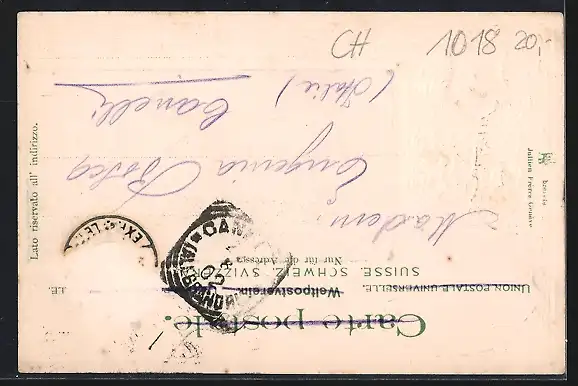 CH 1018 20,-
Carte postale.
UNION POSTALE UNIVERSELLE.
Weltpostverein
SUISSE. SCHWEIZ. SVIZZERA
Nur für die Adresse
Madem.
Eugenia Bosca
Canelli
(Italie)
Lato riservato all' indirizzo.
Jullien Frères Genève
(ALESSANDRIA)